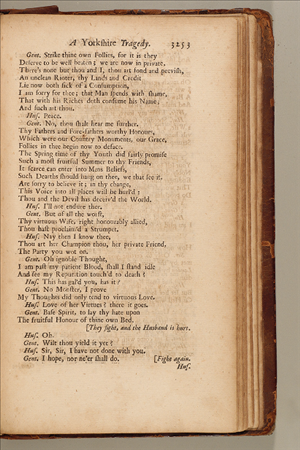 A Yorkshire Tragedy. 3253
Gent. Strike thine own Follies, for it is they
Deserve to be well beaten; we are now in private,
There's none but thou and I, thou art fond and peevish,
An unclean Rioter, thy Lands and Credit
Lie now both sick of a Consumption,
I am sorry for thee; that Man spends with shame,
That with his Riches doth consume his Name;
And such art thou.
Hus. Peace.
Gent. No, thou shalt hear me further.
Thy Fathers and Fore-fathers worthy Honours,
Which were our Country Monuments, our Grace,
Follies in thee begin now to deface.
The Spring time of thy Youth did fairly promise
Such a most fruitful Summer to thy Friends,
It scarce can enter into Mens Beliefs,
Such Dearths should hang on thee, we that see it.
Are sorry to believe it; in thy change,
This Voice into all places will be hurl'd;
Thou and the Devil has deceiv'd the World.
Hus. I'll not endure thee.
Gent. But of all the worst,
Thy virtuous Wife, right honourably allied,
Thou hast proclaim'd a Strumpet.
Hus. Nay then I know thee,
Thou art her Champion thou, her private Friend,
The Party you wot on.
Gent. Oh ignoble Thought,
I am past my patient Blood, shall I stand idle
And see my Reputation touch'd to death?
Hus. This has gal'd you, has it?
Gent. No Monster, I prove
My Thoughts did only tend to virtuous Love.
Hus. Love of her Virtues? there it goes.
Gent. Base Spirit, to lay thy hate upon
The fruitful Honour of thine own Bed.
[They fight, and the Husband is hurt.
Hus. Oh.
Gent. Wilt thou yield it yet?
Hus. Sir, Sir, I have not done with you.
Gent. I hope, nor ne'er shall do. [Fight again.
Hus.